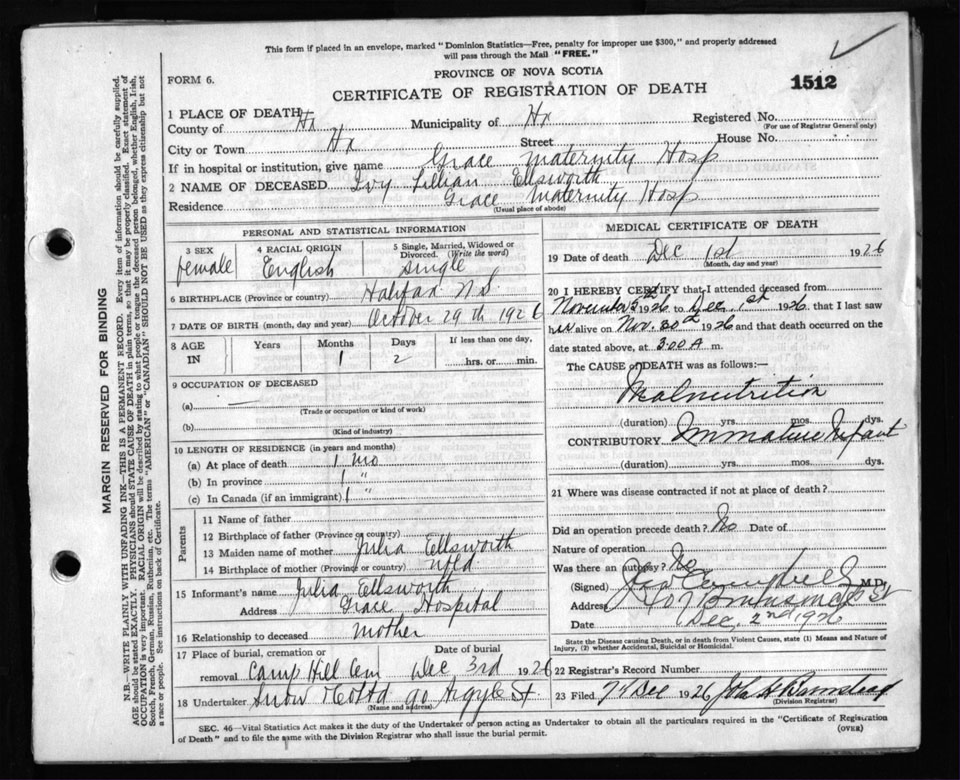 This form if placed in an envelope, marked "Dominion Statistics—Free, penalty for improper use $300," and properly addressed
will pass through the Mail "FREE."
PROVINCE OF NOVA SCOTIA
FORM 6.
CERTIFICATE OF REGISTRATION OF DEATH
1512
1 PLACE OF DEATH
County of Hx Municipality of Hx Registered No.
(For use of Registrar General only)
City or Town Hx Street House No.
If in hospital or institution, give name Grace Maternity Hosp
2 NAME OF DECEASED Ivy Lillian Ellsworth
Residence Grace Maternity Hosp
(Usual place of abode)
PERSONAL AND STATISTICAL INFORMATION
3 SEX 4 RACIAL ORIGIN 5 Single, Married, Widowed or
Divorced. (Write the word)
female English Single
6 BIRTHPLACE (Province or country) Halifax N.S.
7 DATE OF BIRTH (month, day and year) October 29th 1926
8 AGE IN Years Months Days If less than one day,
1 2 hrs. or min.
9 OCCUPATION OF DECEASED
(a) —
(Trade or occupation or kind of work)
(b)
(Kind of industry)
10 LENGTH OF RESIDENCE (in years and months)
(a) At place of death 1 mo
(b) In province 1 "
(c) In Canada (if an immigrant) 1 "
Parents
11 Name of father
12 Birthplace of father (Province or country)
13 Maiden name of mother Julia Ellsworth
14 Birthplace of mother (Province or country) Nfld.
15 Informant's name Julia Ellsworth
Address Grace Hospital
16 Relationship to deceased Mother
17 Place of burial, cremation or Date of burial
removal Camp Hill Cem Dec 3rd 1926
18 Undertaker Snow & Co Ltd 90 Argyle St.
(Name and address)
MEDICAL CERTIFICATE OF DEATH
19 Date of death Dec 1st 1926
(Month, day and year)
20 I HEREBY CERTIFY that I attended deceased from
November 1926 to Dec. 1st 1926 that I last saw
her alive on Nov. 30th 1926 and that death occurred on the
date stated above, at 3.00 A m.
The CAUSE of DEATH was as follows:—
Malnutrition
(duration) yrs. mos. dys.
CONTRIBUTORY Immature Infant
(duration) yrs. mos. dys.
21 Where was disease contracted if not at place of death?
Did an operation precede death? No Date of
Nature of operation
Was there an autopsy? No
(Signed) M.D.
Address St
Date Dec. 2nd 1926
State the Disease causing Death, or in death from Violent Causes, state (1) Means and Nature of
Injury, (2) whether Accidental, Suicidal or Homicidal.
22 Registrar's Record Number
23 Filed 7 Dec 1926
(Division Registrar)
SEC. 46—Vital Statistics Act makes it the duty of the Undertaker or person acting as Undertaker to obtain all the particulars required in the "Certificate of Registration
of Death" and to file the same with the Division Registrar who shall issue the burial permit.
(OVER)
MARGIN RESERVED FOR BINDING
N.B.—WRITE PLAINLY WITH UNFADING INK—THIS IS A PERMANENT RECORD. Every item of information should be carefully supplied.
AGE should be stated EXACTLY. PHYSICIANS should STATE CAUSE OF DEATH in plain terms, so that it may be properly classified. Exact statement of
OCCUPATION is very important. RACIAL ORIGIN will be described by stating to what people or tongue the deceased person belonged, whether English, Irish,
Scotch, French, German, Russian, Ruthenian, etc. The terms "AMERICAN" or "CANADIAN" SHOULD NOT BE USED as they express citizenship but not
a race or people. See instructions on back of Certificate.